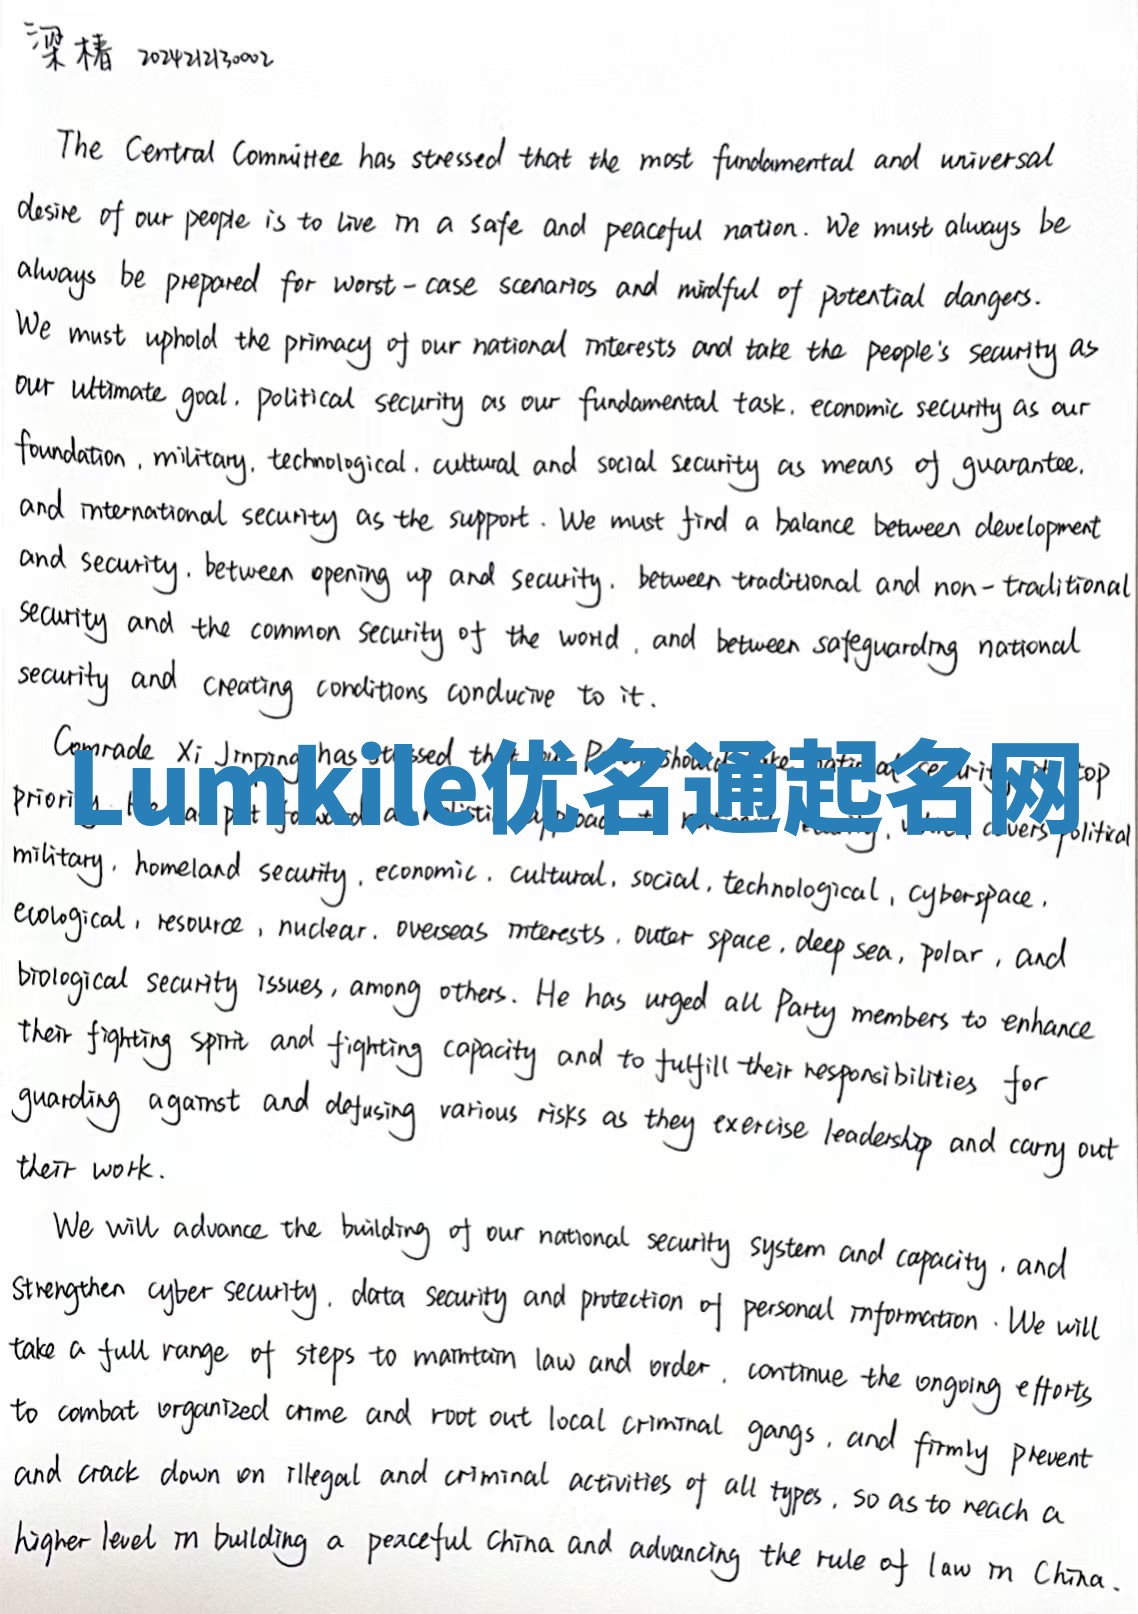 梁椿 2024212130002
The Central Committee has stressed that the most fundamental and universal
desire of our people is to live in a safe and peaceful nation. We must always be
always be prepared for worst-case scenarios and mindful of potential dangers.
We must uphold the primacy of our national interests and take the people's security as
our ultimate goal, political security as our fundamental task, economic security as our
foundation, military, technological, cultural and social security as means of guarantee,
and international security as the support. We must find a balance between development
and security, between opening up and security, between traditional and non-traditional
security and the common security of the world, and between safeguarding national
security and creating conditions conducive to it.
Comrade Xi Jinping has stressed that our should take national security top
Lumkile优名通起名网
priority. He has put forward a holistic approach to national security, which covers political
military, homeland security, economic, cultural, social, technological, cyberspace,
ecological, resource, nuclear, overseas interests, outer space, deep sea, polar, and
biological security issues, among others. He has urged all Party members to enhance
their fighting spirit and fighting capacity and to fulfill their responsibilities for
guarding against and defusing various risks as they exercise leadership and carry out
their work.
We will advance the building of our national security system and capacity, and
strengthen cyber security, data security and protection of personal information. We will
take a full range of steps to maintain law and order, continue the ongoing efforts
to combat organized crime and root out local criminal gangs, and firmly prevent
and crack down on illegal and criminal activities of all types, so as to reach a
higher level in building a peaceful China and advancing the rule of law in China.